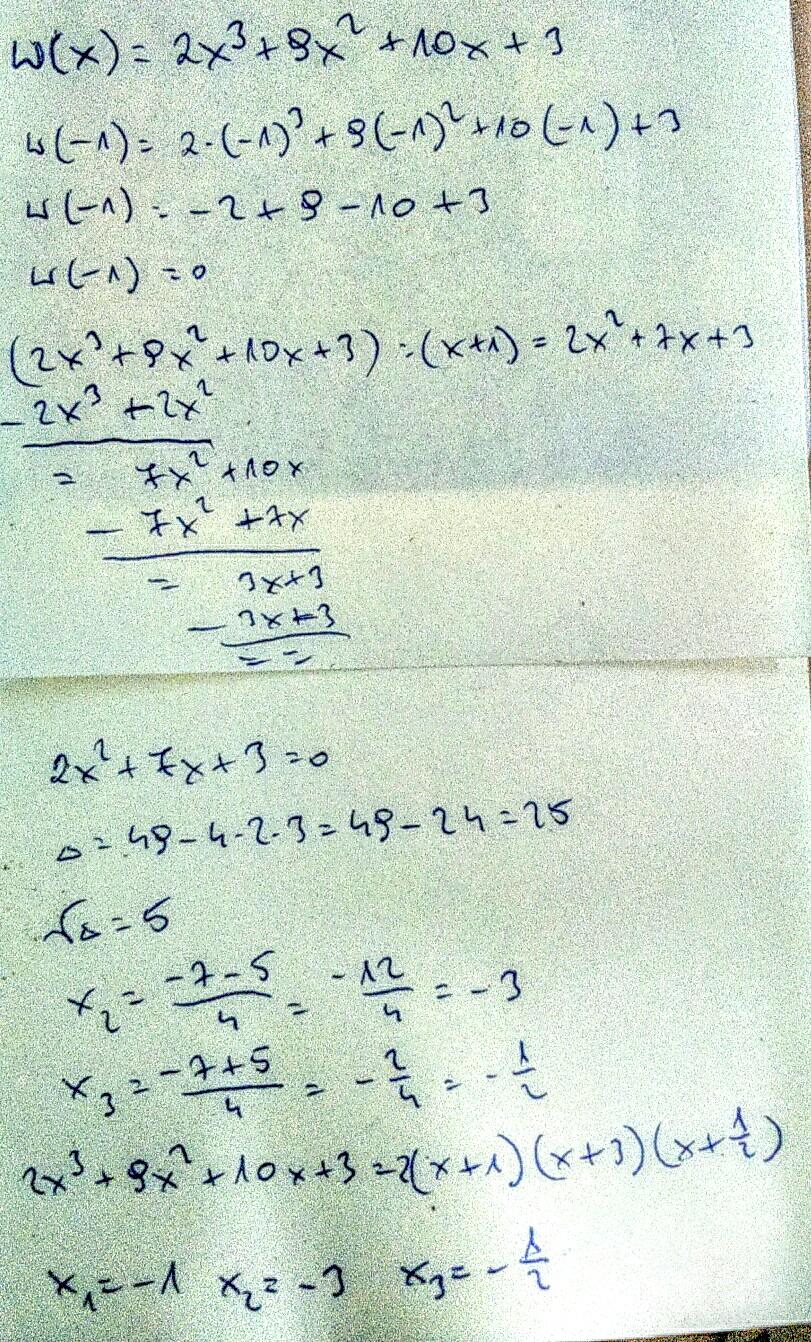 W(x) = 2x³ + 9x² + 10x + 3
W(-1) = 2·(-1)³ + 9(-1)² + 10(-1) + 3
W(-1) = -2 + 9 - 10 + 3
W(-1) = 0
(2x³ + 9x² + 10x + 3) : (x+1) = 2x² + 7x + 3
-2x³ + 2x²
= 7x² + 10x
- 7x² + 7x
= 3x+3
- 3x+3
= =
2x² + 7x + 3 = 0
△ = 49 - 4·2·3 = 49 - 24 = 25
√△ = 5
x₂ = (-7-5)/4 = -12/4 = -3
x₃ = (-7+5)/4 = -2/4 = -1/2
2x³ + 9x² + 10x + 3 = 2(x+1)(x+3)(x+1/2)
x₁ = -1 x₂ = -3 x₃ = -1/2